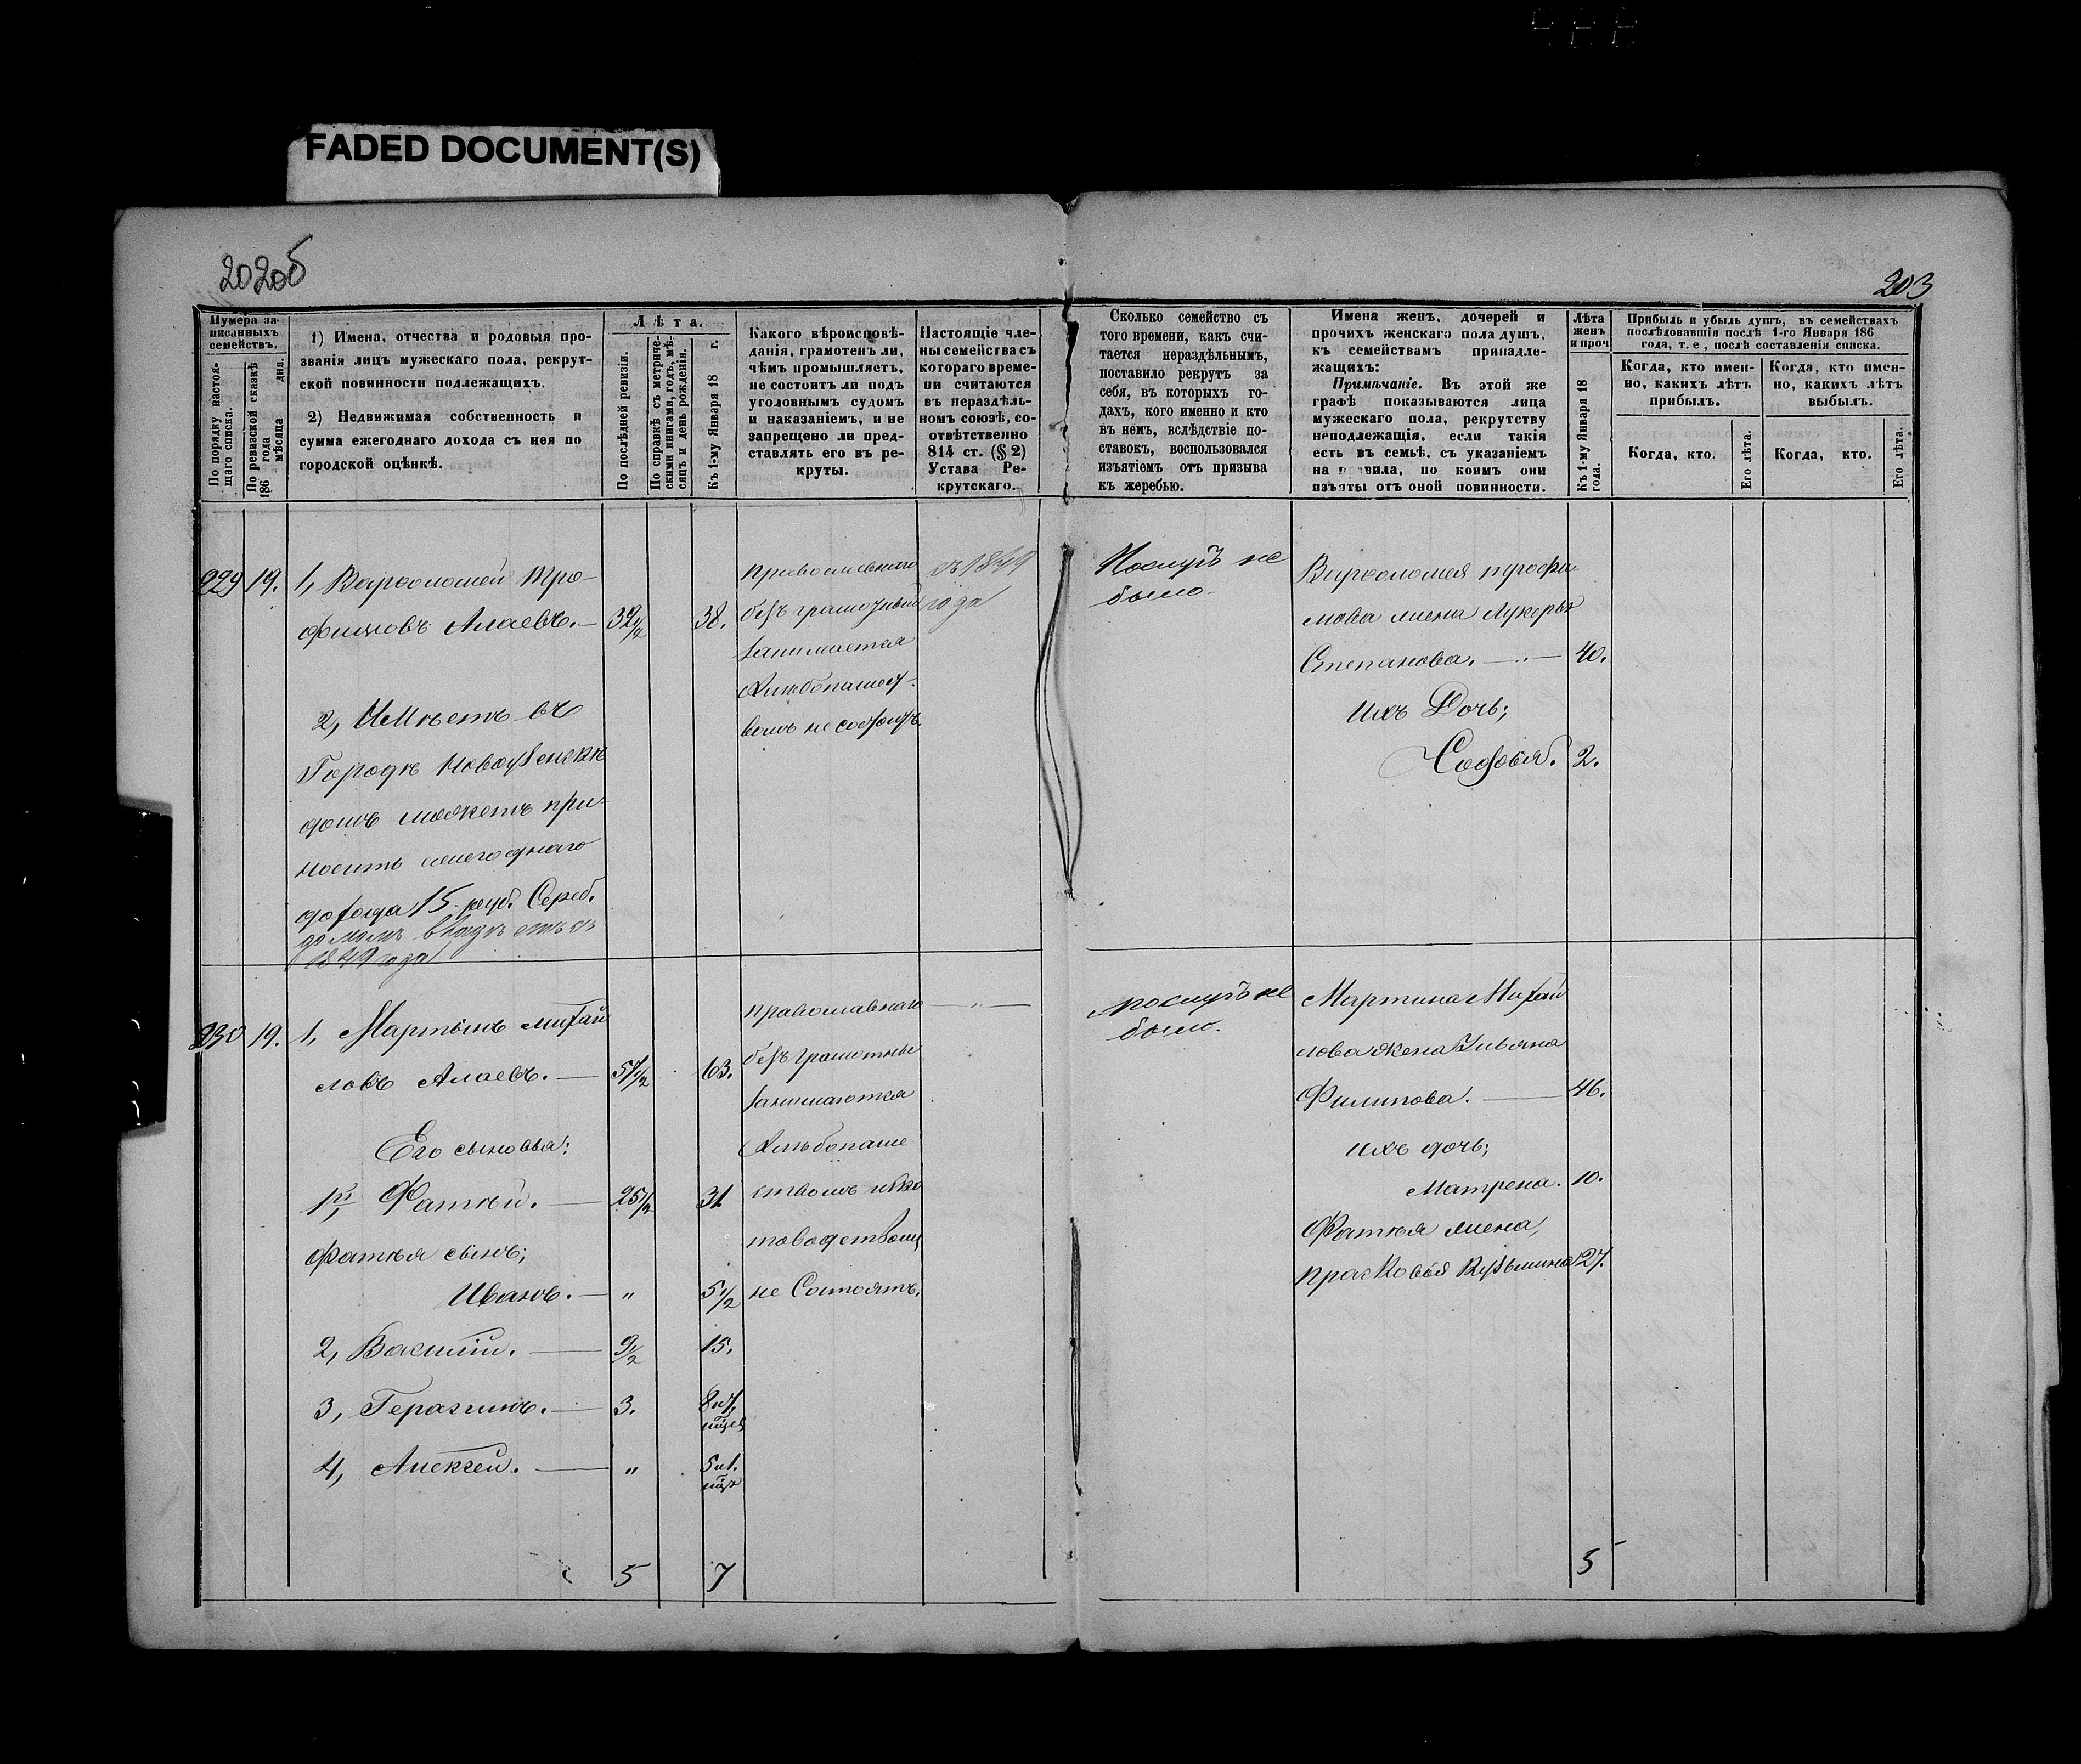 FADED DOCUMENT(S)
202об
203
Нумера за-
писанныхъ
семействъ.
По порядку настоя-
щаго списка.
По ревизской сказкѣ
186 года
мѣсяца дня.
1) Имена, отчества и родовыя про-
званія лицъ мужескаго пола, рекрут-
ской повинности подлежащихъ.
2) Недвижимая собственность и
сумма ежегоднаго дохода съ нея по
городской оцѣнкѣ.
Лѣта.
По послѣдней ревизіи.
По справкѣ съ метриче-
скими книгами, годъ, мѣ-
сяцъ и день рожденія.
Къ 1-му Января 18 г.
Какого вѣроисповѣ-
данія, грамотенъ ли,
чѣмъ промышляетъ,
не состоитъ ли подъ
уголовнымъ судомъ
и наказаніемъ, и не
запрещено ли пред-
ставлять его въ ре-
круты.
Настоящіе чле-
ны семейства съ
котораго време-
ни считаются
въ нераздѣль-
номъ союзѣ, со-
отвѣтственно
814 ст. (§ 2)
Устава Ре-
крутскаго.
Сколько семейство съ
того времени, какъ счи-
тается нераздѣльнымъ,
поставило рекрутъ за
себя, въ которыхъ го-
дахъ, кого именно и кто
въ немъ, вслѣдствіе по-
ставокъ, воспользовался
изъятіемъ отъ призыва
къ жеребью.
Имена женъ, дочерей и
прочихъ женскаго пола душъ,
къ семействамъ принадле-
жащихъ:
Примѣчаніе. Въ этой же
графѣ показываются лица
мужескаго пола, рекрутству
неподлежащія, если такія
есть въ семьѣ, съ указаніемъ
на правила, по коимъ они
изъяты отъ оной повинности.
Лѣта
женъ
и проч
Къ 1-му Января 18
года.
Прибыль и убыль душъ, въ семействахъ
послѣдовавшія послѣ 1-го Января 186
года, т. е, послѣ составленія списка.
Когда, кто имен-
но, какихъ лѣтъ
прибылъ.
Когда, кто имен-
но, какихъ лѣтъ
выбылъ.
Когда, кто.
Его лѣта.
Когда, кто.
Его лѣта.
229 19. 1, Варѳоломей Тро-
фимовъ Алаевъ. — 32 1/2 38.
2, Имѣетъ въ
Городѣ Новоузенскѣ
домъ можетъ при-
носить ежегоднаго
дохода 15 руб. Сереб.
домомъ владѣетъ съ
1849 года
православнаго
безграмотный
занимается
хлѣбопашест-
вомъ не состоитъ
съ 1849
года
Послугъ не
было.
Варѳоломея Трофи-
мова жена Лукерья
Степанова. — „ — 40.
Ихъ Дочь;
Софья. 2.
230 19. 1, Мартынъ Михай
ловъ Алаевъ. — 57 1/2 63.
Его сыновья:
1й, Фатѣй. — 25 1/2 31
Фатѣя сынъ;
Иванъ. — „ 5 1/2
2, Василій. — 9 1/2 15.
3, Герасимъ. — 3. 8 и 7
4, Алексей. — „ 5 и 1.
5 7
православнаго — „ —
безграмотны
занимаются
хлѣбопаше
ствомъ и ско
товодствомъ
не Состоятъ.
послугъ не
было.
Мартына Михай
лова жена Ульяна
Филипова. — 46.
ихъ дочь;
Матрена. 10.
Фатѣя жена,
Прасковья Кузьмина 27.
5